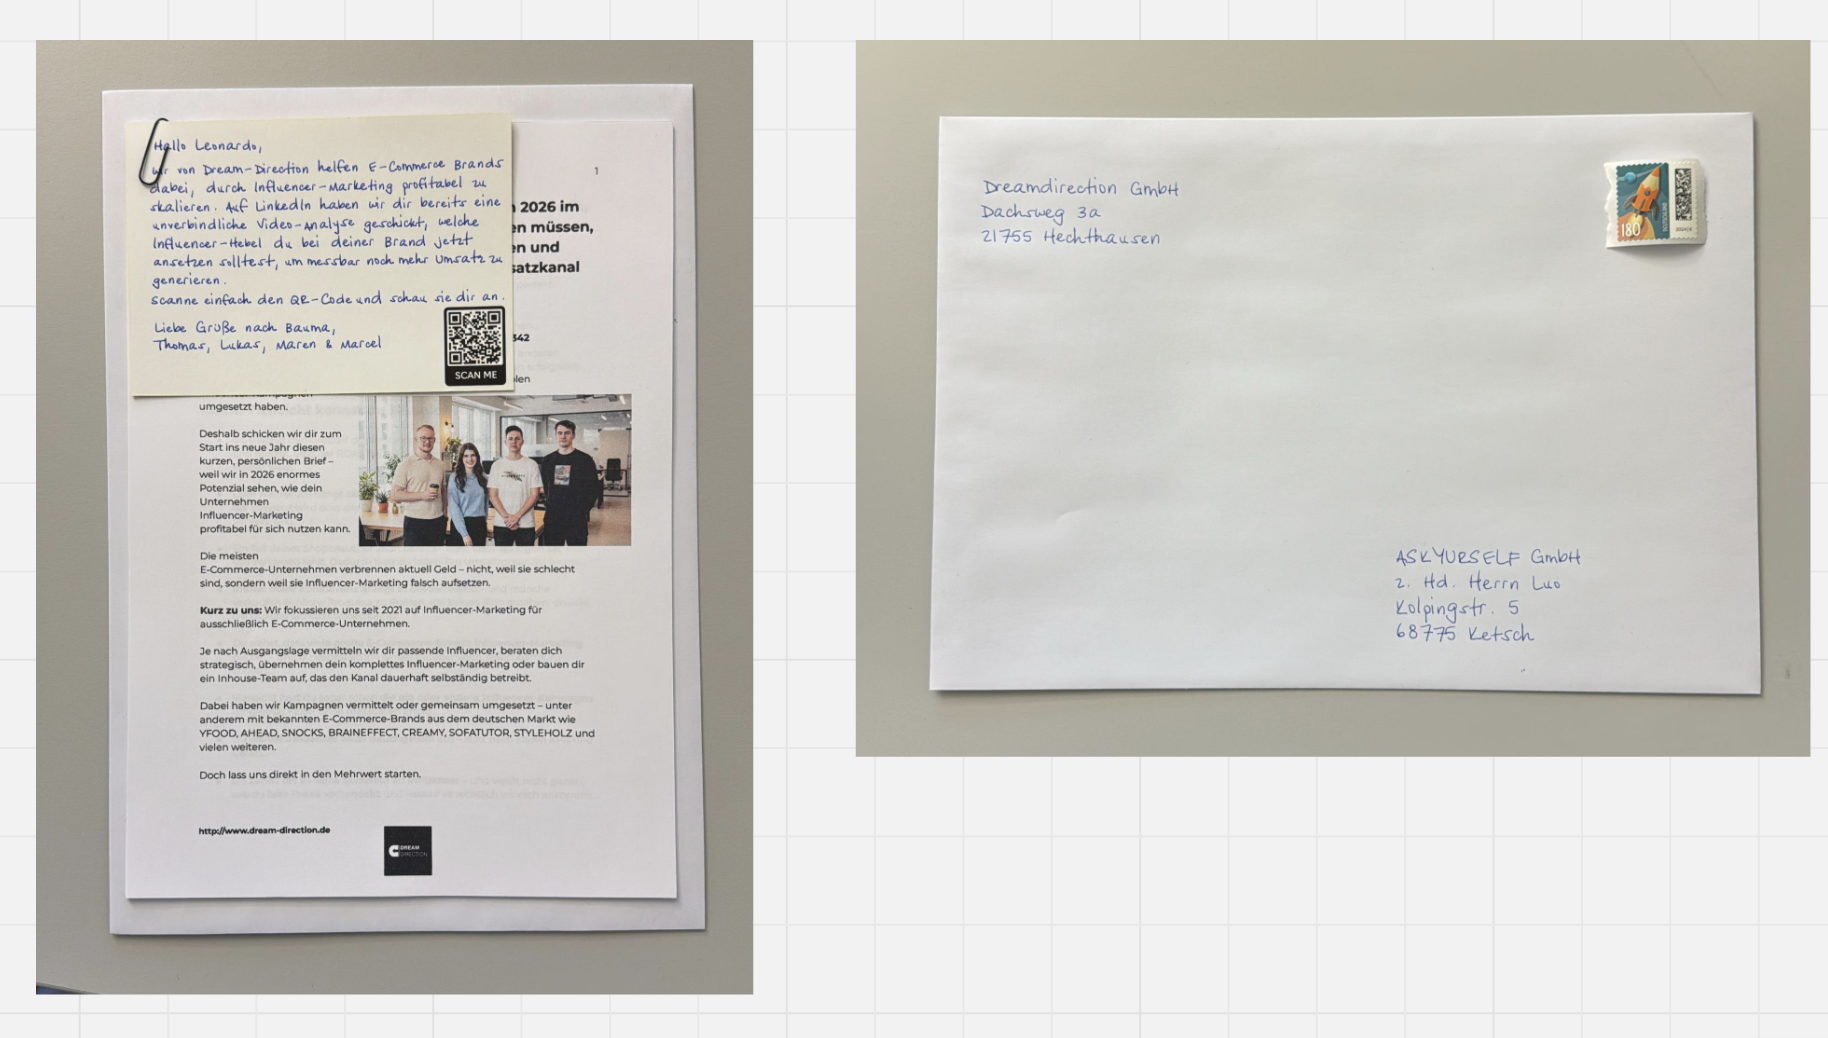 Hallo Leonardo,
wir von Dream-Direction helfen E-Commerce Brands
dabei, durch Influencer-Marketing profitabel zu
skalieren. Auf LinkedIn haben wir dir bereits eine
unverbindliche Video-Analyse geschickt, welche
Influencer-Hebel du bei deiner Brand jetzt
ansetzen solltest, um messbar noch mehr Umsatz zu
generieren.
Scanne einfach den QR-Code und schau sie dir an.
Liebe Grüße nach Bauma,
Thomas, Lukas, Maren & Marcel
SCAN ME
1
2026 im
en müssen,
en und
satzkanal
342
len
umgesetzt haben.
Deshalb schicken wir dir zum
Start ins neue Jahr diesen
kurzen, persönlichen Brief –
weil wir in 2026 enormes
Potenzial sehen, wie dein
Unternehmen
Influencer-Marketing
profitabel für sich nutzen kann.
Die meisten
E-Commerce-Unternehmen verbrennen aktuell Geld – nicht, weil sie schlecht
sind, sondern weil sie Influencer-Marketing falsch aufsetzen.
Kurz zu uns: Wir fokussieren uns seit 2021 auf Influencer-Marketing für
ausschließlich E-Commerce-Unternehmen.
Je nach Ausgangslage vermitteln wir dir passende Influencer, beraten dich
strategisch, übernehmen dein komplettes Influencer-Marketing oder bauen dir
ein Inhouse-Team auf, das den Kanal dauerhaft selbständig betreibt.
Dabei haben wir Kampagnen vermittelt oder gemeinsam umgesetzt – unter
anderem mit bekannten E-Commerce-Brands aus dem deutschen Markt wie
YFOOD, AHEAD, SNOCKS, BRAINEFFECT, CREAMY, SOFATUTOR, STYLEHOLZ und
vielen weiteren.
Doch lass uns direkt in den Mehrwert starten.
http://www.dream-direction.de
DREAM
DIRECTION
Dreamdirection GmbH
Dachsweg 3a
21755 Hechthausen
180
ASKYURSELF GmbH
z. Hd. Herrn Luo
Kolpingstr. 5
68775 Ketsch